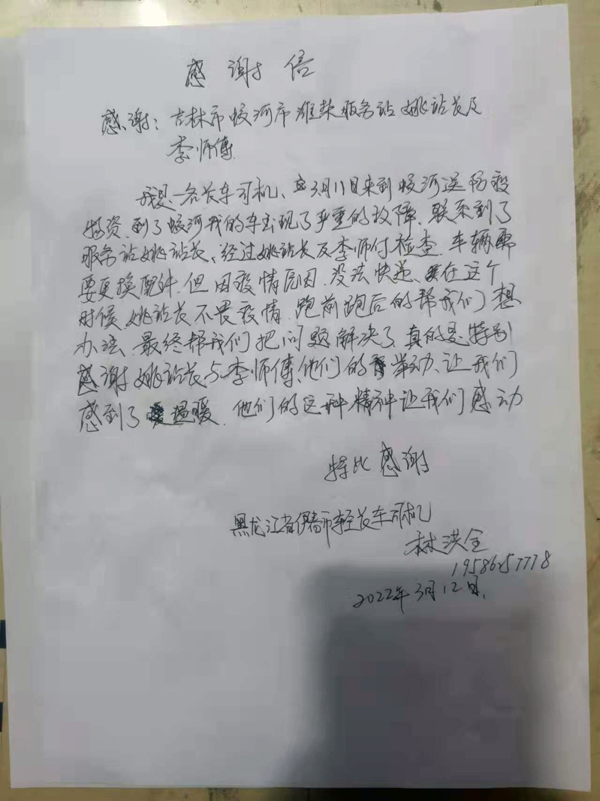 感谢信
感谢：吉林市蛟河市潍柴服务站姚站长及
李师傅
我是一名长车司机、3月11日来到蛟河送防疫
物资到了蛟河我的车出现了严重的故障.联系到了
服务站姚站长、经过姚站长及李师付检查.车辆需
要更换配件.但因疫情原因.没法快递、在这个
时候姚站长不畏疫情.跑前跑后的帮我们想
办法.最终帮我们把问题解决了真的是特别
感谢姚站长与李师傅、他们的举动.让我们
感到了温暖.他们的这种精神让我们感动
特比感谢
黑龙江省长车司机
林洪全
2022年3月12日.